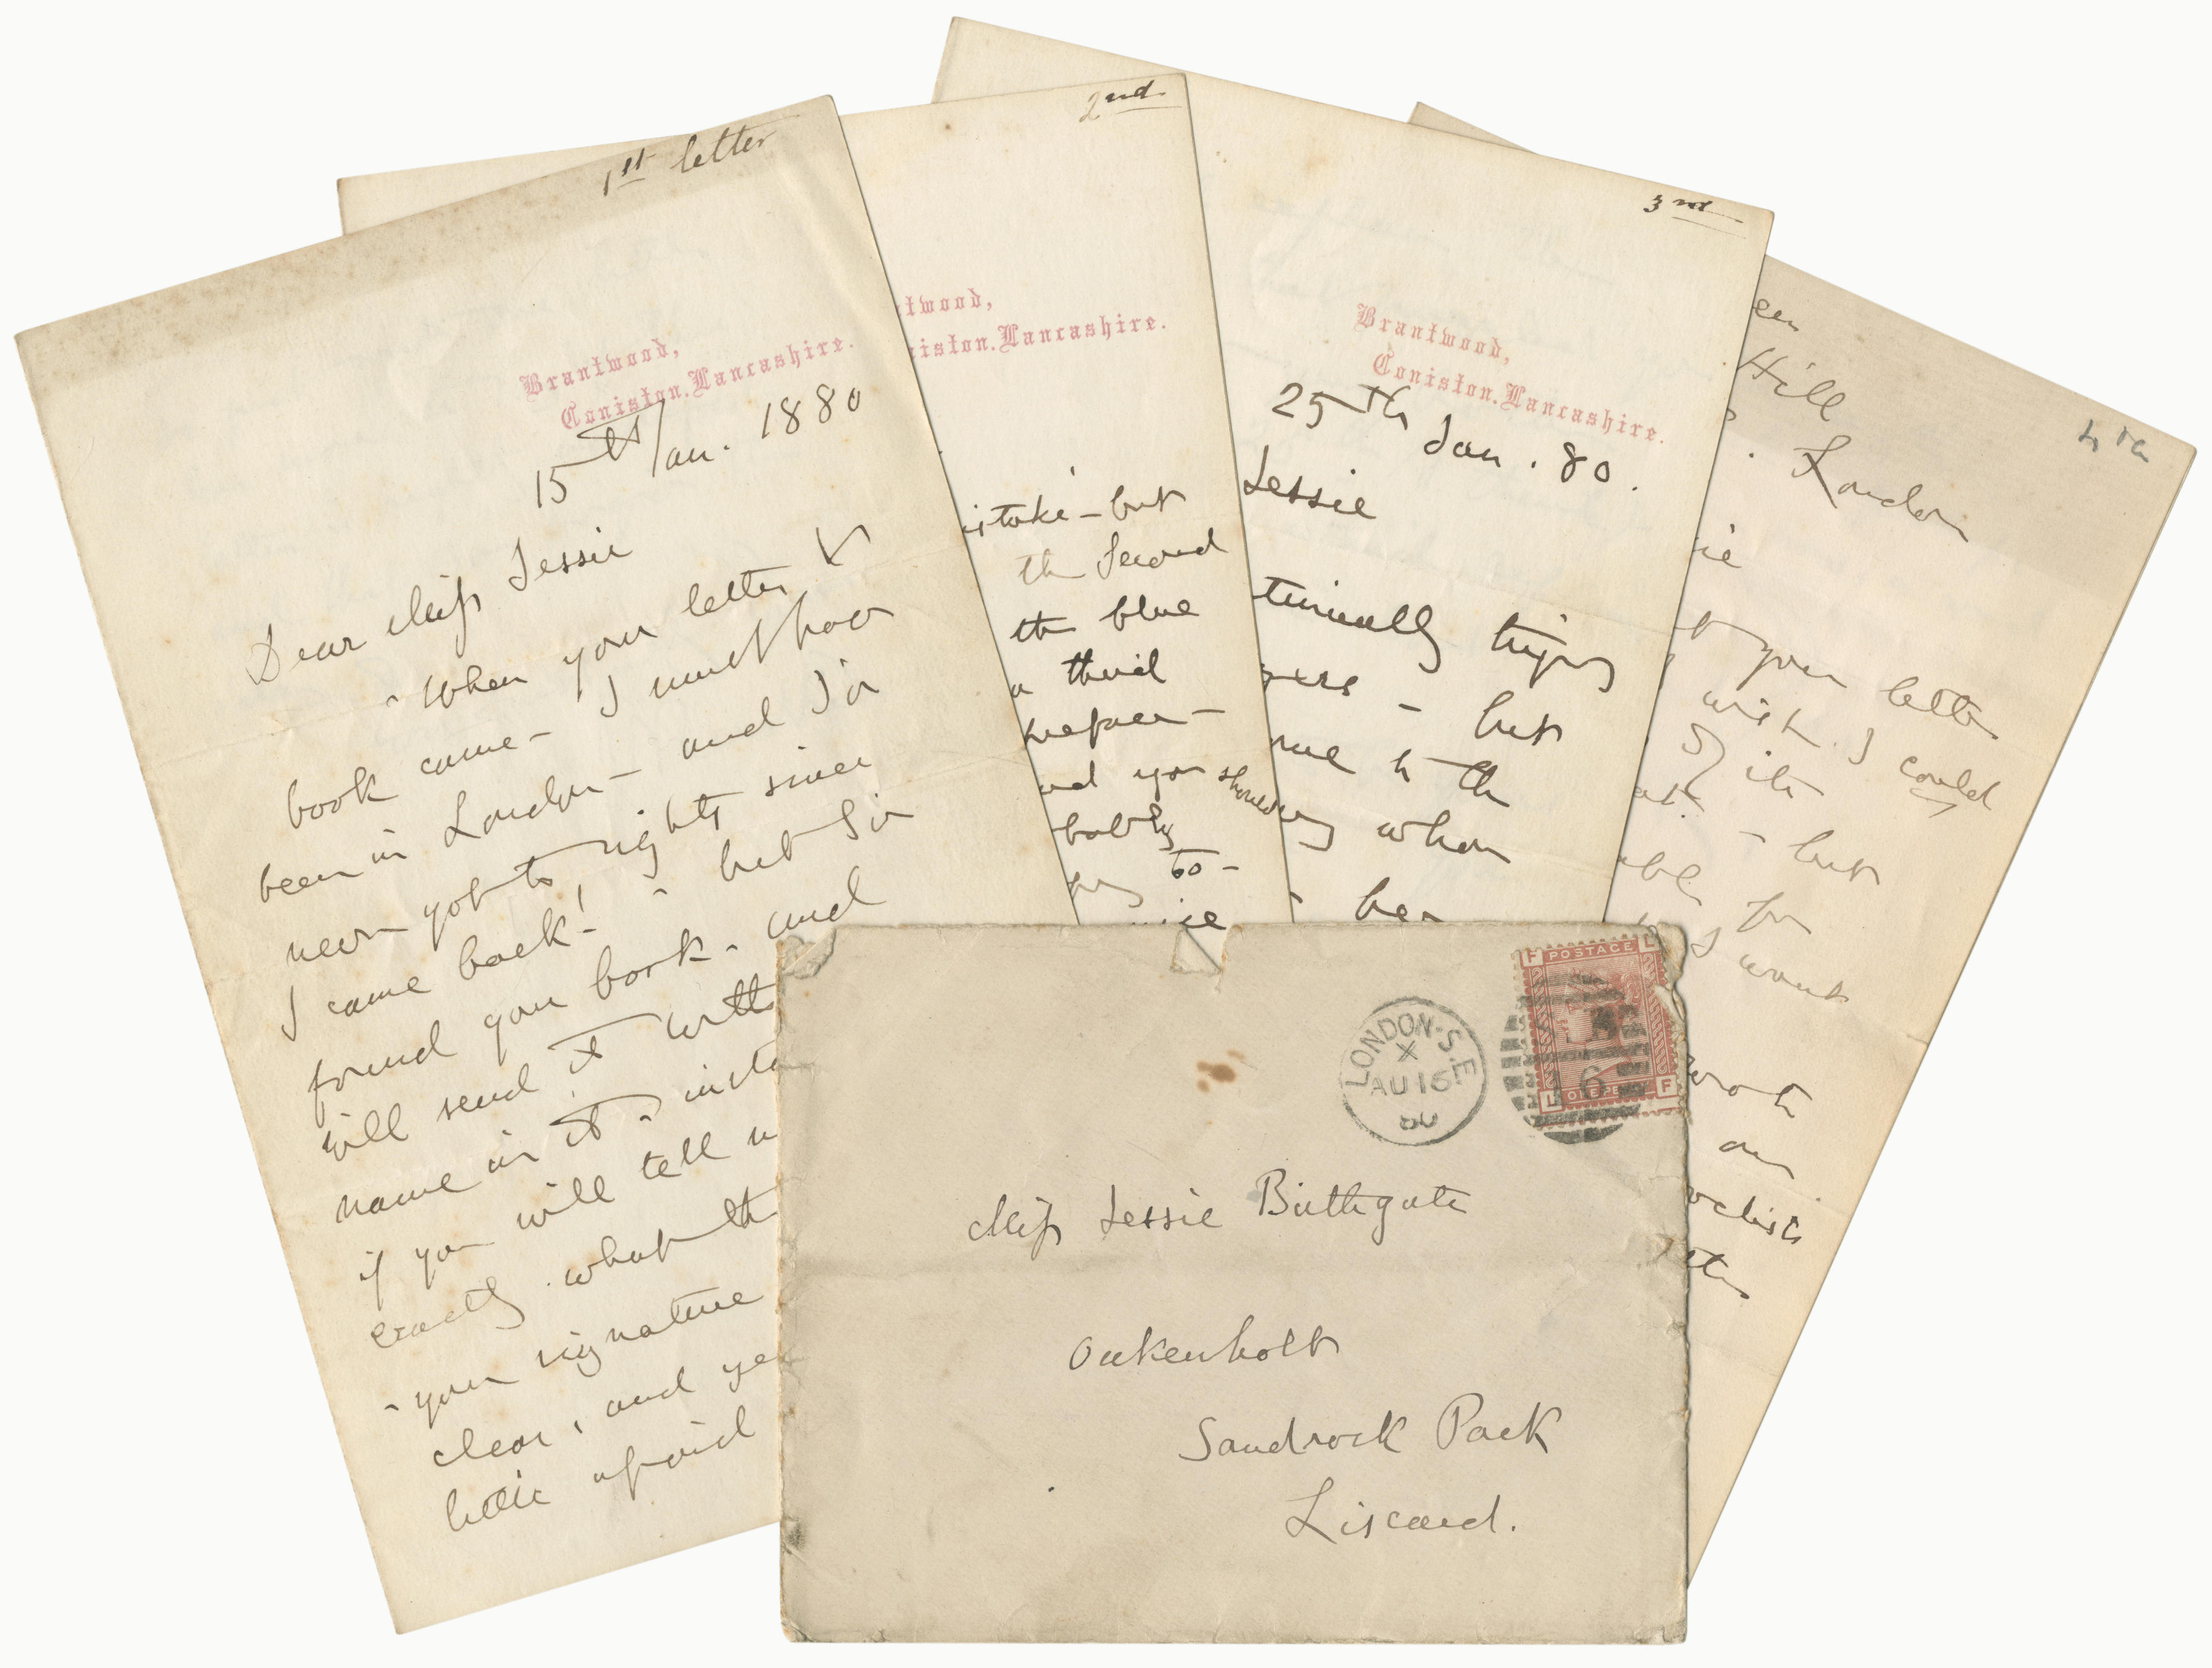 1st letter
Brantwood,
Coniston. Lancashire.
15th Jan. 1880
Dear Miss Jessie
When your letter &
book came - I must have
been in London - and I've
never got to rights since
I came back! - but I've
found your book - and
will send it with
name in it -
if you will tell
exactly what th
- your signature
clear, and ye
little afraid
2nd
twood,
iston. Lancashire.
istake - but
the second
the blue
a third
preface -
and you should
bably
to -
ice
3rd
Brantwood,
Coniston. Lancashire.
25th Jan. 80.
Jessie
- but
me to the
whom
her
4th
een
Hill
London
ie
your letter
wish I could
it
- but
able for
I want
wrote
an
LONDON.S.E
X
AU 16
80
POSTAGE
H L
L F
Miss Jessie Bathgate
Oakenholt
Sandrock Park
Liscard.